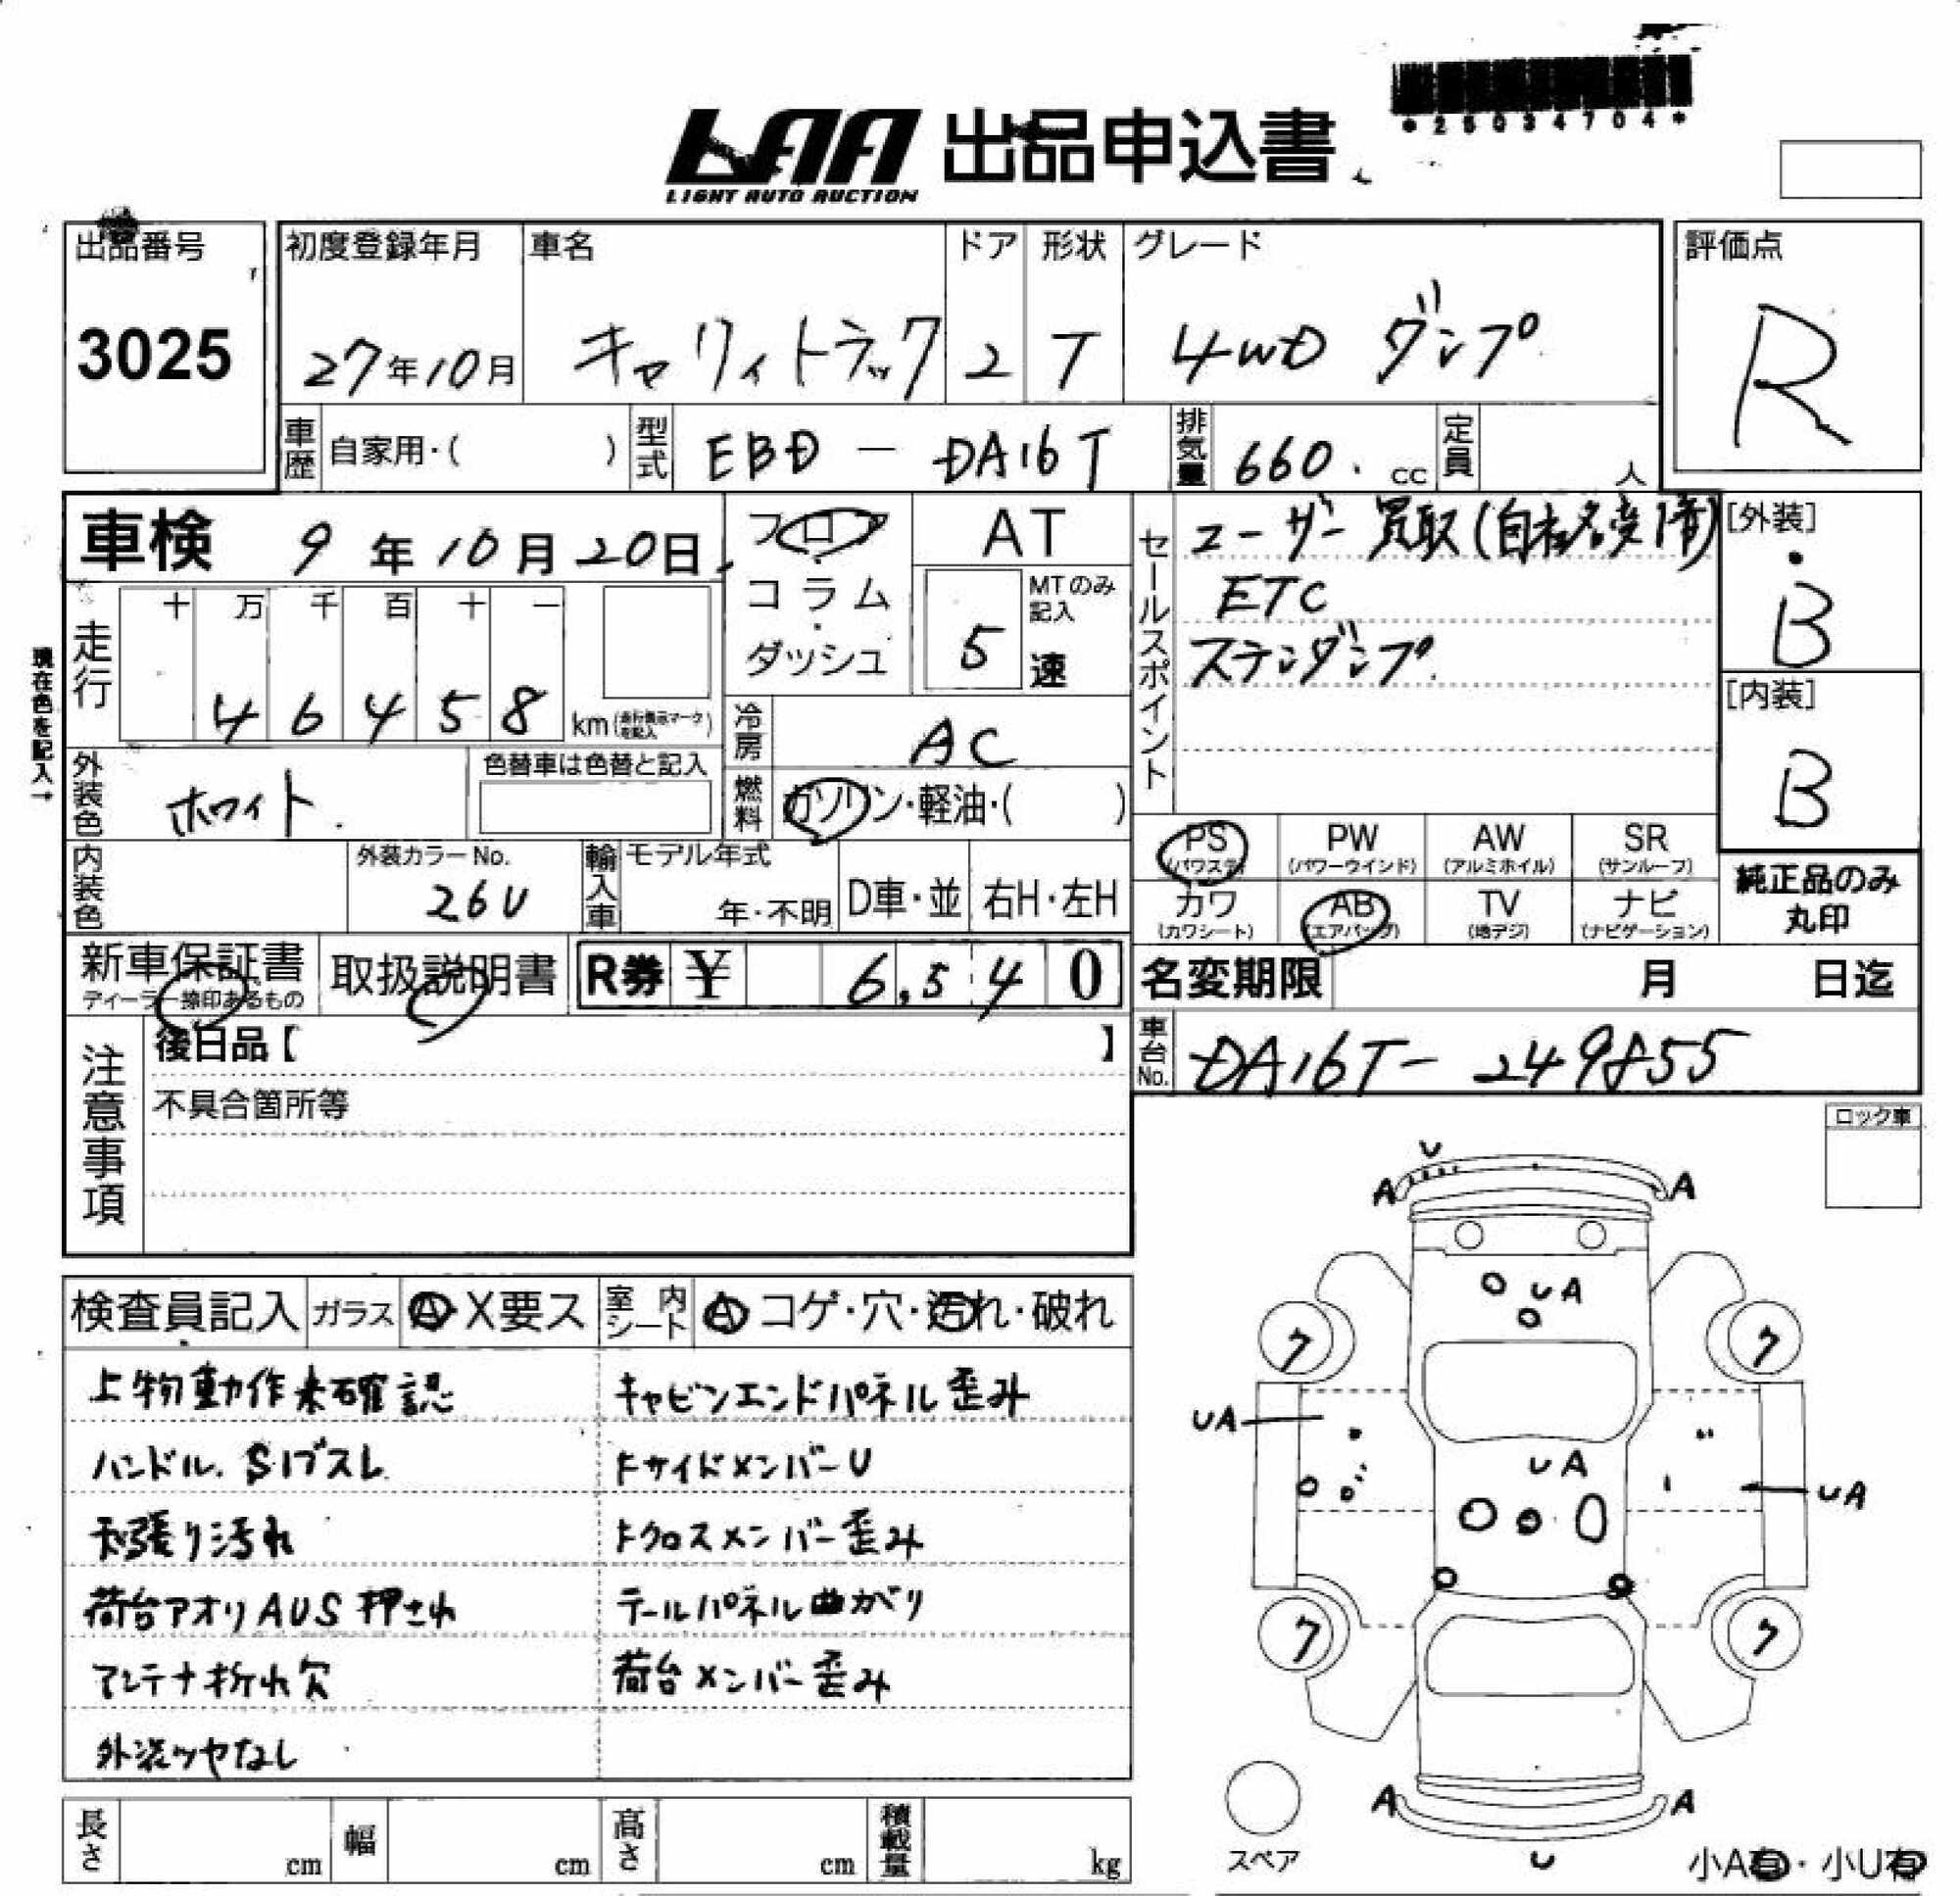 *25034704*
LAA 出品申込書
LIGHT AUTO AUCTION
出品番号
3025
初度登録年月
27年10月
車名
キャリィトラック
ドア
2
形状
T
グレード
4WD ダンプ
評価点
R
車歴 自家用・( )
型式 EBD - DA16T
排気量 660. cc
定員 人
車検 9年10月20日
フロア・コラム・ダッシュ
AT
MTのみ記入
5速
セールスポイント
ユーザー買取(自社名変済)
ETC
ステンダンプ
[外装]
B
[内装]
B
現在色を記入→
走行
十 万 千 百 十 一
4 6 4 5 8 km (走行表示マークを記入)
冷房 AC
外装色 ホワイト
色替車は色替と記入
燃料 ガソリン・軽油・( )
内装色
外装カラーNo.
26U
輸入車 モデル年式
年・不明
D車・並
右H・左H
PS (パワステ)
PW (パワーウインド)
AW (アルミホイル)
SR (サンルーフ)
カワ (カワシート)
AB (エアバッグ)
TV (地デジ)
ナビ (ナビゲーション)
純正品のみ丸印
新車保証書
ディーラー捺印あるもの
取扱説明書
R券 ¥ 6,540
名変期限 月 日迄
車台No. DA16T-249855
注意事項
後日品【 】
不具合箇所等
ロック車
検査員記入
ガラス A・X要ス
室内シート A コゲ・穴・汚れ・破れ
上物動作未確認
ハンドル. Sノブスレ
天張り汚れ
荷台アオリAUS押され
アンテナ折れ欠
外装ツヤなし
キャビンエンドパネル歪み
トサイドメンバーU
トクロスメンバー歪み
テールパネル曲がり
荷台メンバー歪み
U
A A
UA
ク ク
UA
UA
UA
ク ク
A A
U
スペア
小A有・小U有
長さ cm
幅 cm
高さ cm
積載量 kg